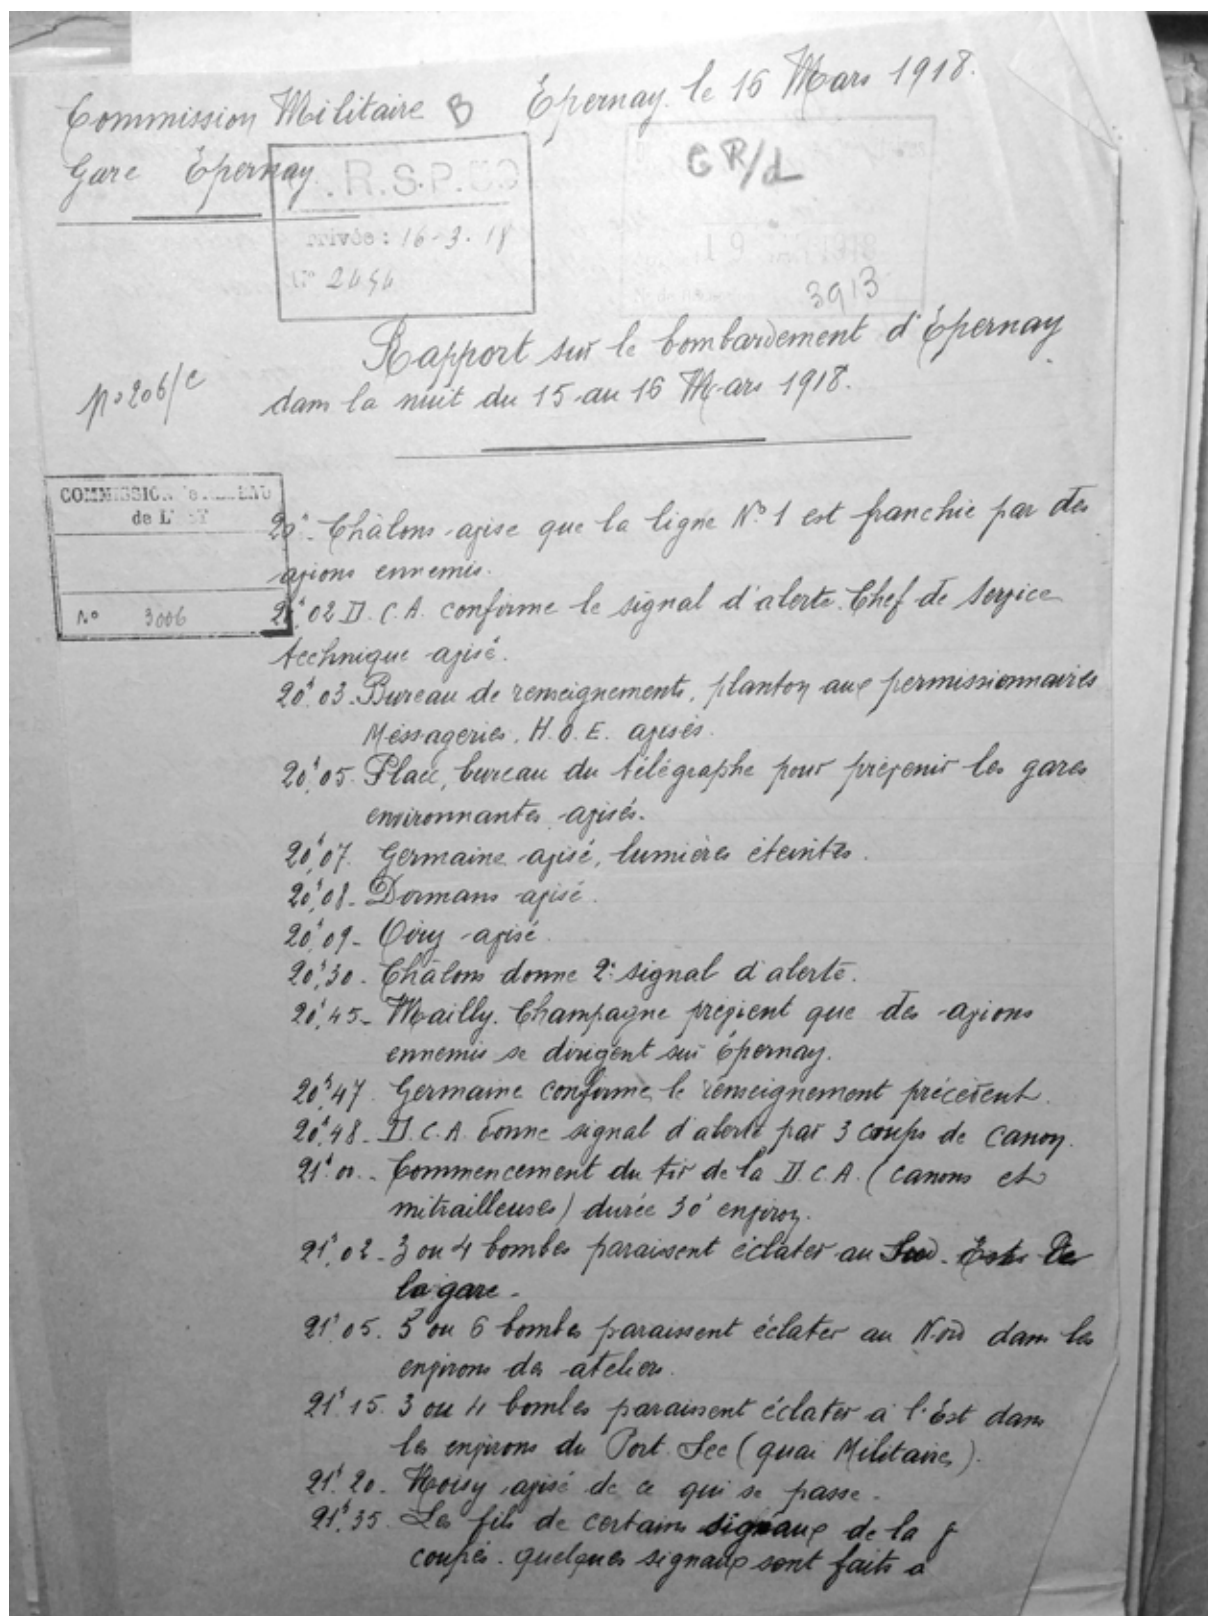 Commission Militaire B Épernay le 16 Mars 1918.
Gare Épernay
R.S.P.
GR/L
Arrivée : 16-3-18
N° 2454
3913
Rapport sur le bombardement d'Épernay
dans la nuit du 15 au 16 Mars 1918.
N° 206/C
COMMISSION de
de L'EST
N° 3006
20h - Châlons avise que la ligne N° 1 est franchie par des
avions ennemis.
20h,02 D.C.A. confirme le signal d'alerte. Chef de Service
technique avisé.
20h,03 - Bureau de renseignements, planton aux permissionnaires
Méssageries. H.O.E. avisés.
20h,05. Place, bureau du télégraphe pour prévenir les gares
environnantes avisés.
20h,07. Germaine avisé, lumières éteintes.
20h,08 - Dormans avisé.
20h,09 - Oiry avisé.
20h,30 - Châlons donne 2e signal d'alerte.
20h,45 - Mailly-Champagne prévient que des avions
ennemis se dirigent sur Épernay.
20h,47. Germaine confirme le renseignement précédent.
20h,48 - D.C.A. donne signal d'alerte par 3 coups de canon.
21h,00 - Commencement du tir de la D.C.A. (canons et
mitrailleuses) durée 30' environ.
21h,02 - 3 ou 4 bombes paraissent éclater au Sud-Est de
la gare -
21h,05. 5 ou 6 bombes paraissent éclater au Nord dans les
environs des ateliers.
21h,15. 3 ou 4 bombes paraissent éclater à l'Est dans
les environs du Port Sec (quai Militaire).
21h,20 - Noisy avisé de ce qui se passe -
21h,35. Les fils de certains signaux de la g
coupés. quelques signaux sont faits a